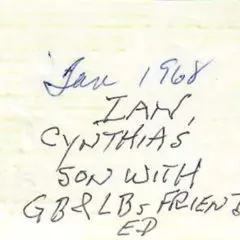 Jan 1968
IAN,
CYNTHIAS
SON WITH
GB&LBs FRIEND
ED